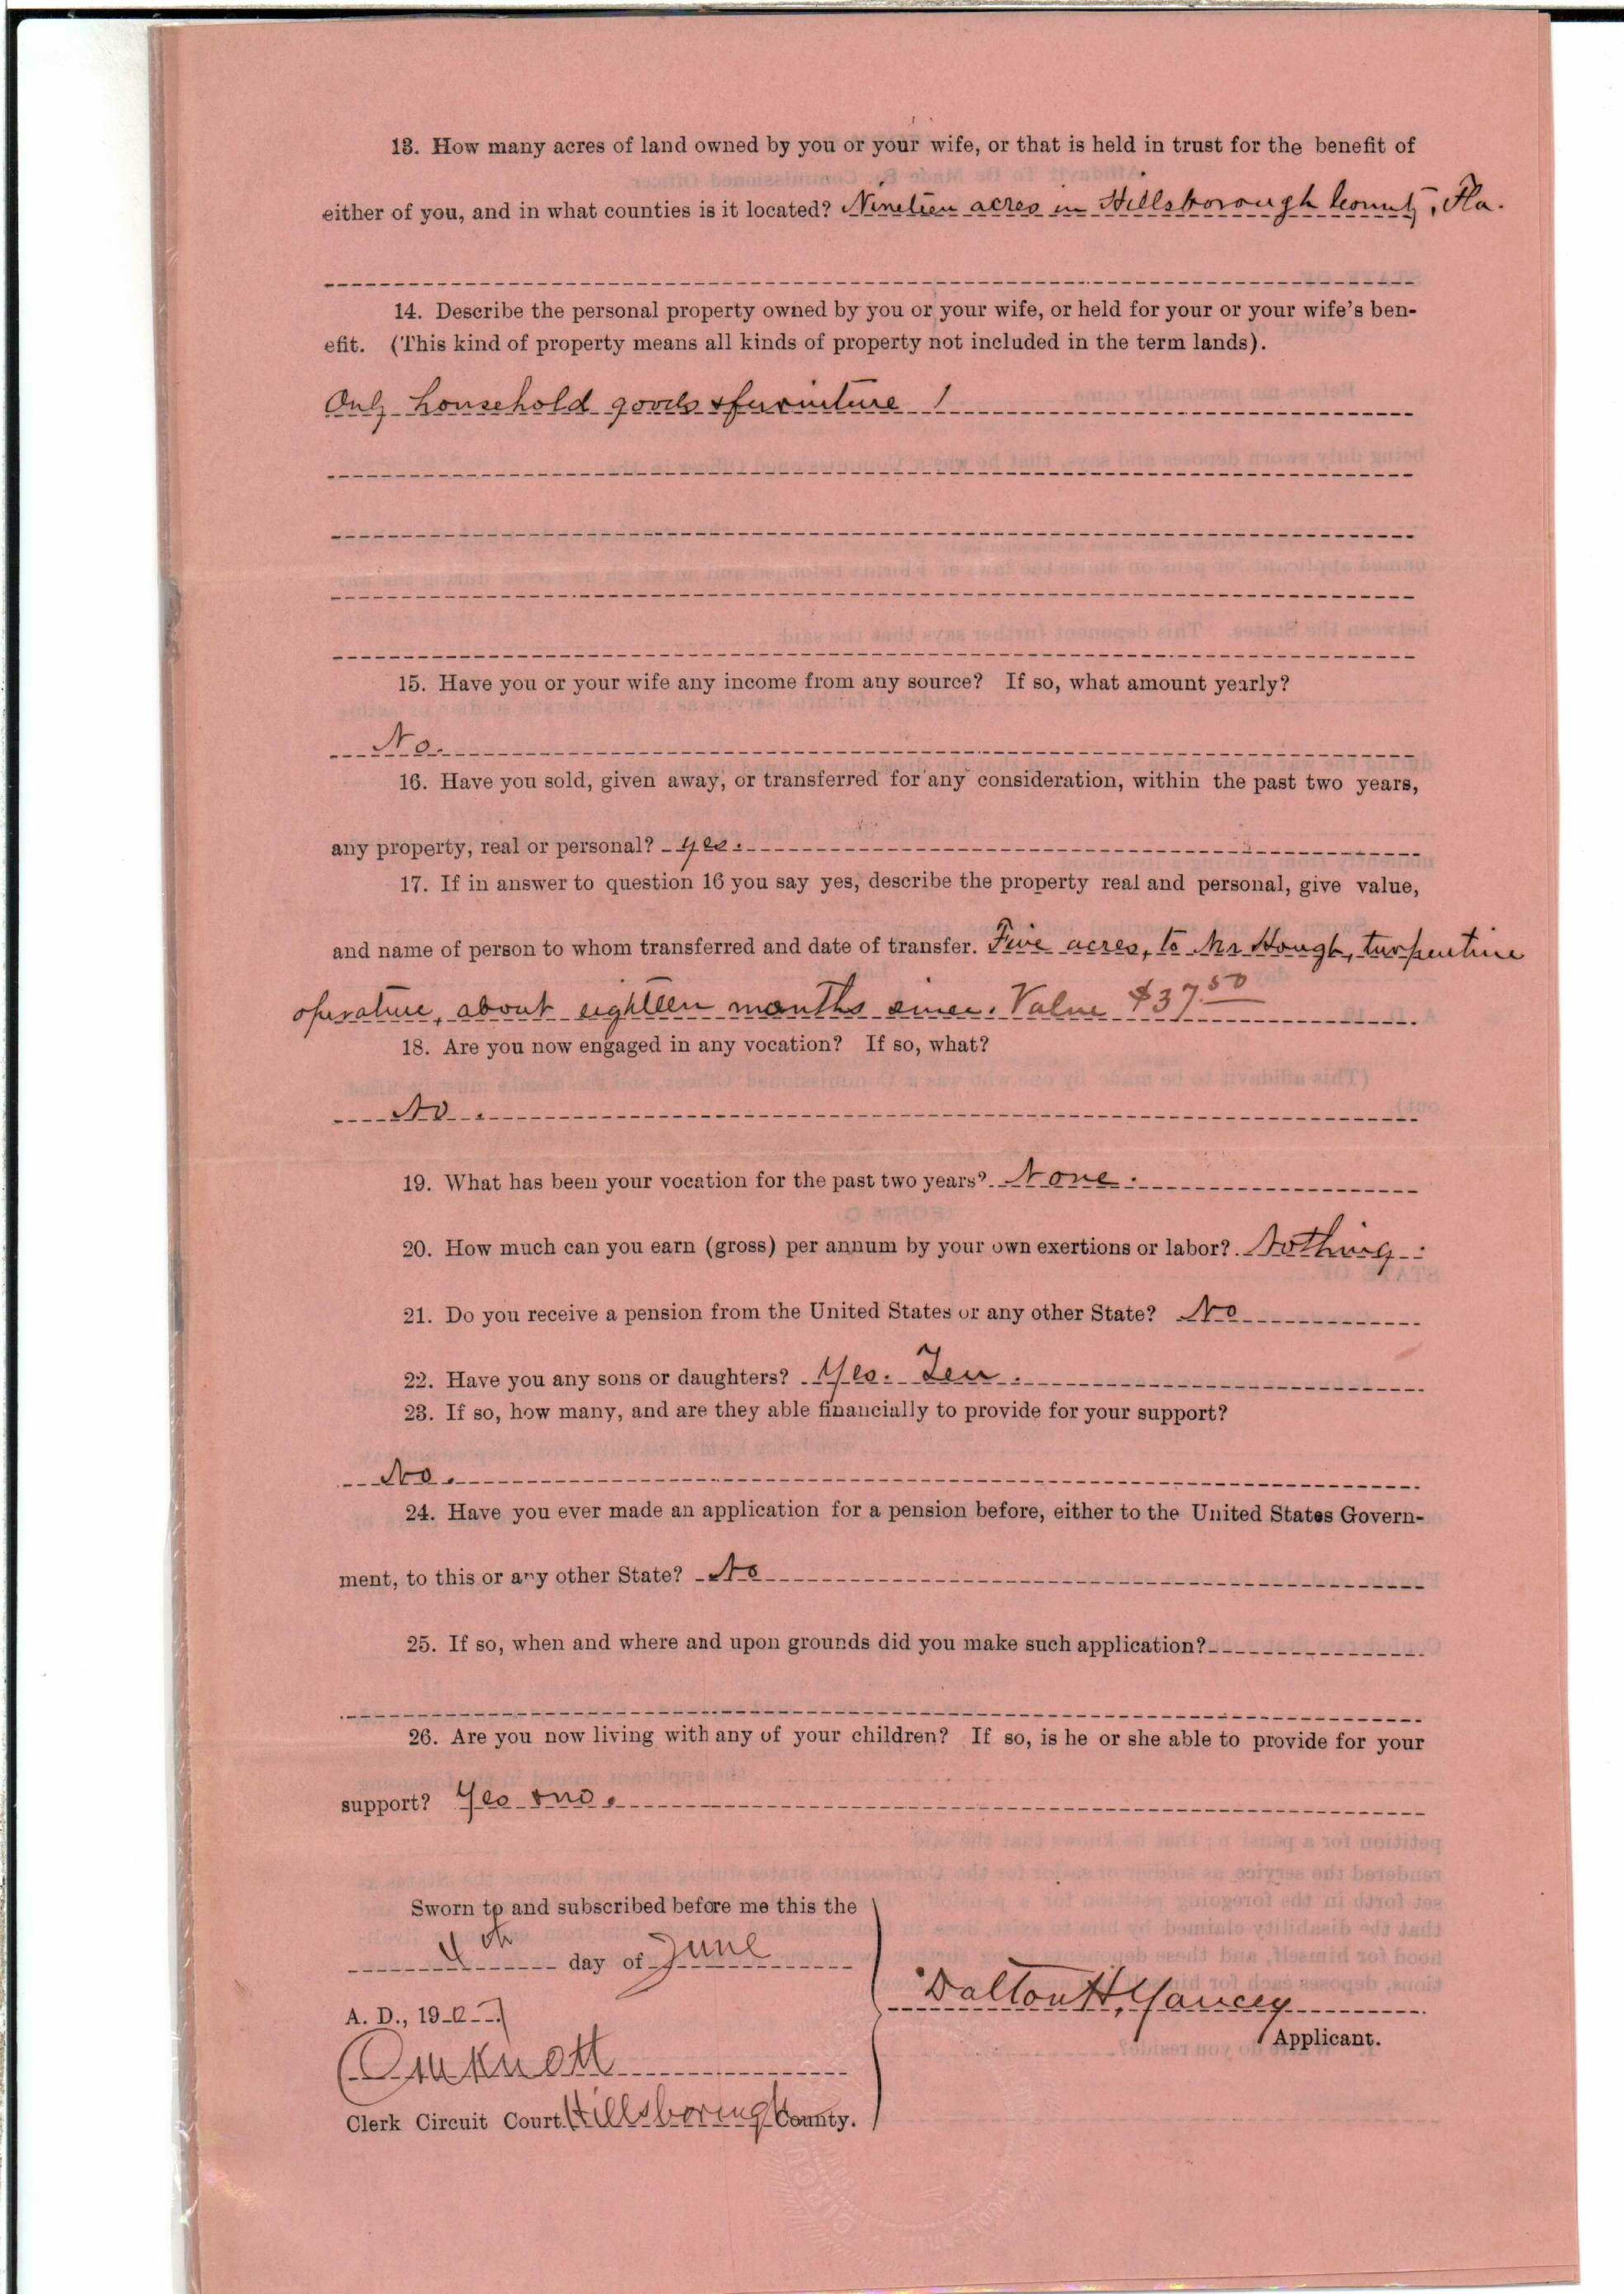 13. How many acres of land owned by you or your wife, or that is held in trust for the benefit of
either of you, and in what counties is it located? Nineteen acres in Hillsborough County, Fla.
14. Describe the personal property owned by you or your wife, or held for your or your wife's ben-
efit. (This kind of property means all kinds of property not included in the term lands).
Only household goods & furniture
15. Have you or your wife any income from any source? If so, what amount yearly?
No.
16. Have you sold, given away, or transferred for any consideration, within the past two years,
any property, real or personal? yes.
17. If in answer to question 16 you say yes, describe the property real and personal, give value,
and name of person to whom transferred and date of transfer. Five acres, to Mr Hough, turpentine
operature, about eighteen months since. Value $37.50
18. Are you now engaged in any vocation? If so, what?
No.
19. What has been your vocation for the past two years? None.
20. How much can you earn (gross) per annum by your own exertions or labor? Nothing.
21. Do you receive a pension from the United States or any other State? No
22. Have you any sons or daughters? Yes. Ten.
23. If so, how many, and are they able financially to provide for your support?
No.
24. Have you ever made an application for a pension before, either to the United States Govern-
ment, to this or any other State? No
25. If so, when and where and upon grounds did you make such application?
26. Are you now living with any of your children? If so, is he or she able to provide for your
support? Yes & no.
Sworn to and subscribed before me this the
4th day of June
A. D., 1907
Dalton H. Yancey
Applicant.
Knott
Clerk Circuit Court Hillsborough County.